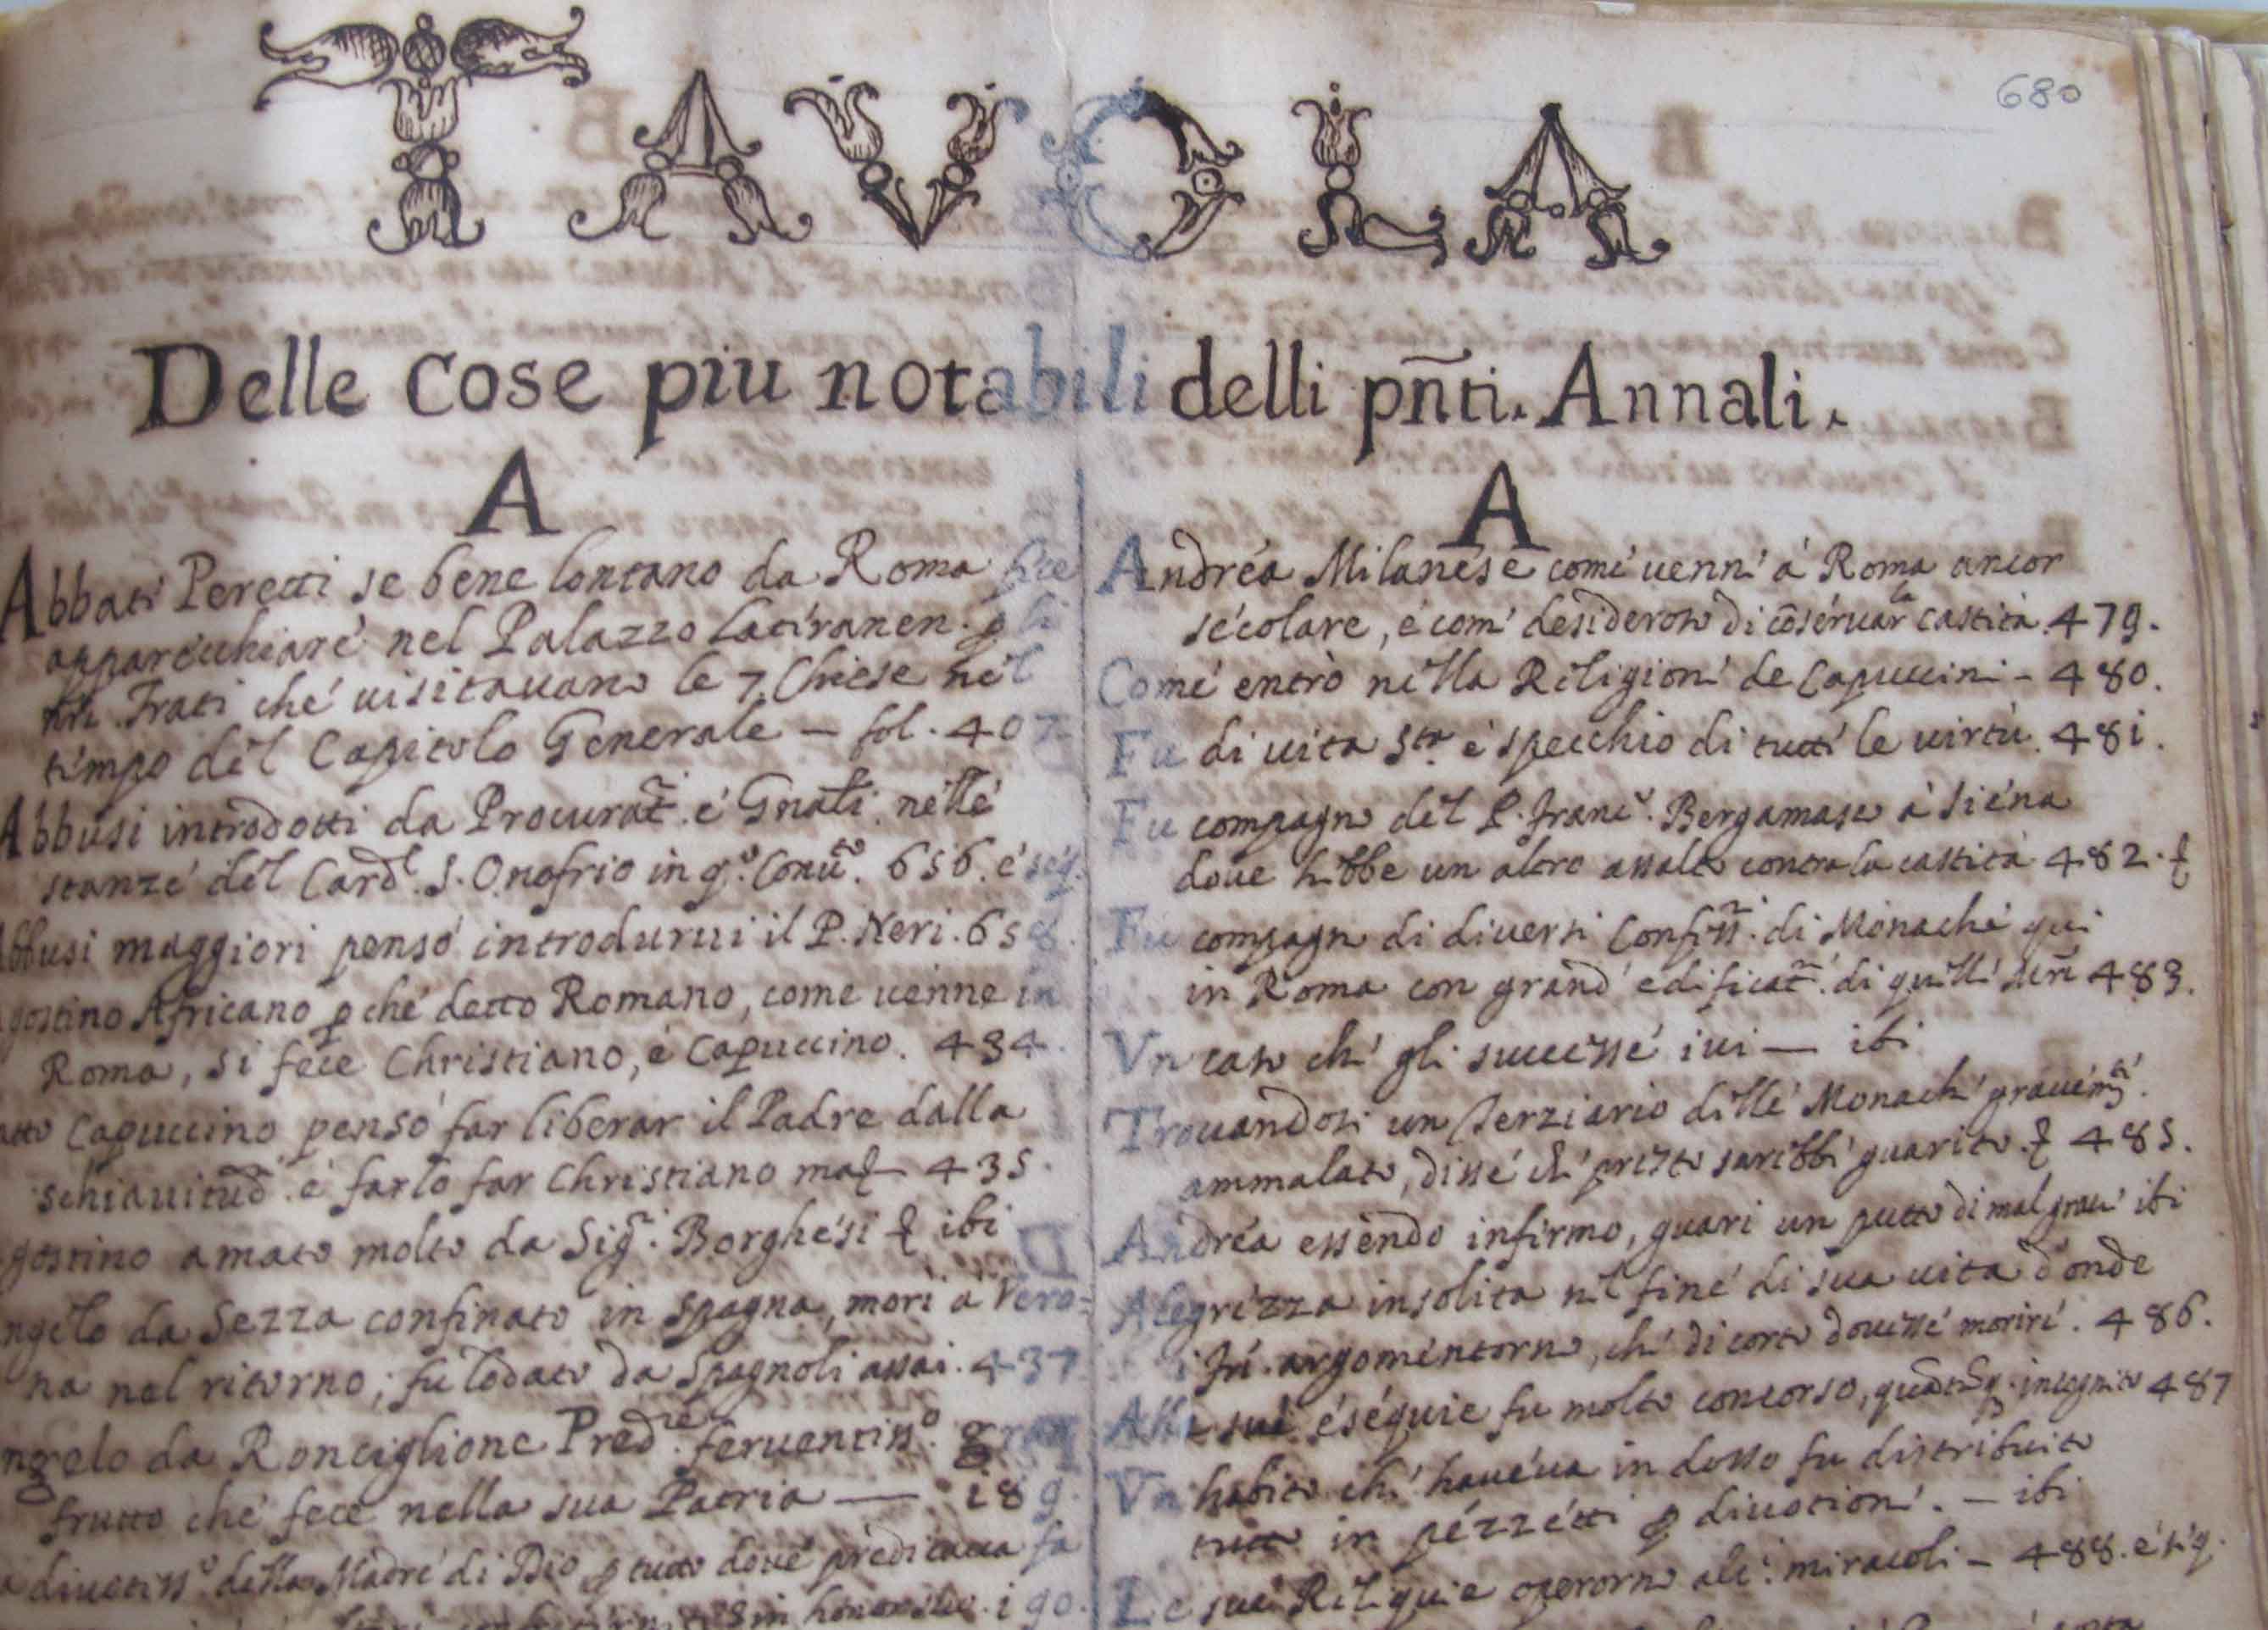 680
TAVOLA
Delle Cose piu notabili delli pñti. Annali.
A
Abbati Peretti se bene lontano da Roma fece
apparecchiare nel Palazzo Lateranen. p li
nri. Frati che visitavano le 7. Chiese nel
tempo del Capitolo Generale — fol. 407
Abbusi introdotti da Procurat. é Gnali. nelle
stanze del Card. S. Onofrio in q.º Conv.to 656. é seq.
Abbusi maggiori pensó introdurvi il P. Neri. 658.
gostino Africano p che detto Romano, come venne in
Roma, si fece Christiano, é Capuccino. 434.
atto Capuccino pensó far liberar il Padre dalla
schiavitud. é farlo far Christiano ma 435.
gostino amato molto da Sig.ri Borghesi ibi
ngelo da Sezza confinato in Spagna, mori à Vero=
na nel ritorno; fu lodato da Spagnoli assai. 437
ngelo da Ronciglione Pred.re ferventiss.º gran
frutto che fece nella sua Patria — i89.
divotiss.º della Madre di Dio p tutto dove predicava fa
i90.
A
Andréa Milanese come venne à Roma ancor
secolare, é com' desideroso di cõservar la castità. 479.
Come entrò nella Religione de Capuccini - 480.
Fu di vita S.ta é specchio di tutte le virtù. 48i.
Fu compagno del P. Franc.º Bergamasco à Siena
dove hebbe un altro assalto contra la castità 482.
Fu compagno di diversi Confess.ri di Monache qui
in Roma con grand' edificat. di quelle 483.
Vn caso che gli successe ivi — ibi
Trovandosi un Terziario delle Monache gravem.te
ammalato, disse che presto sarebbe guarito. 485.
Andréa essendo infermo, guari un putto di mal grave ibi
Alegrezza insolita nel fine di sua vita donde
i fri. argomentorno, che di corto dovesse morire. 486.
Alle sue eséquie fu molto concorso, incognito 487
Vn habito che haveva in dosso fu distribuito
tutto in pezzetti p divotione. — ibi
Le sue Reliquie operorno alc. miracoli — 488. é seq.